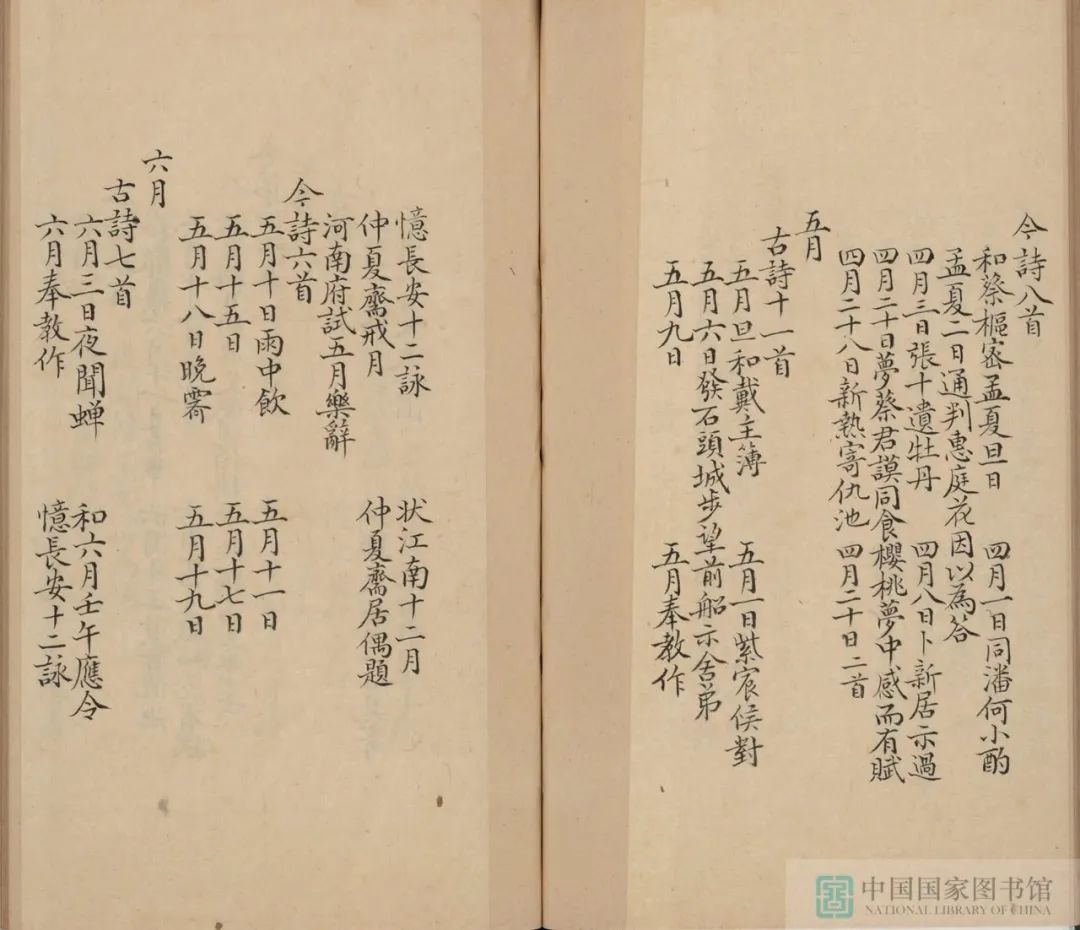 今詩八首
和蔡樞密孟夏旦日 四月一日同潘何小酌
孟夏二日通判惠庭花因以為答
四月三日張十遺牡丹 四月八日卜新居示過
四月二十日夢蔡君謨同食櫻桃夢中感而有賦
四月二十八日新熟寄仇池 四月二十日二首
五月
古詩十一首
五月旦和戴主簿 五月一日紫宸侯對
五月六日發石頭城步望前船示舍弟
五月九日 五月奉教作
憶長安十二詠 状江南十二月
仲夏齋戒月 仲夏齋居偶題
河南府試五月樂辭
今詩六首
五月十日雨中飲 五月十一日
五月十五日 五月十七日
五月十八日晚霽 五月十九日
六月
古詩七首
六月三日夜聞蝉 和六月壬午應令
六月奉教作 憶長安十二詠
中国国家图书馆
NATIONAL LIBRARY OF CHINA